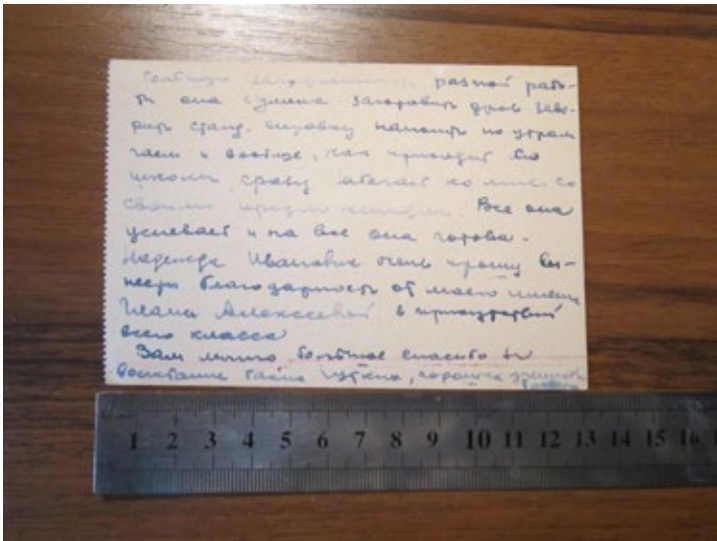 большую загруженность разной рабо-
ты она сумела заготовить дров
напоить по утрам
чаем и вообще, как приходит со
школы сразу ко мне со
своими Все она
успевает и на все она готова.
Надежда Ивановна очень прошу вы-
нести благодарность от моего имени
Алексеевой в присутствии
всего класса
Вам лично большое спасибо за
воспитание таких чутких, хороших
1 2 3 4 5 6 7 8 9 10 11 12 13 14 15 16